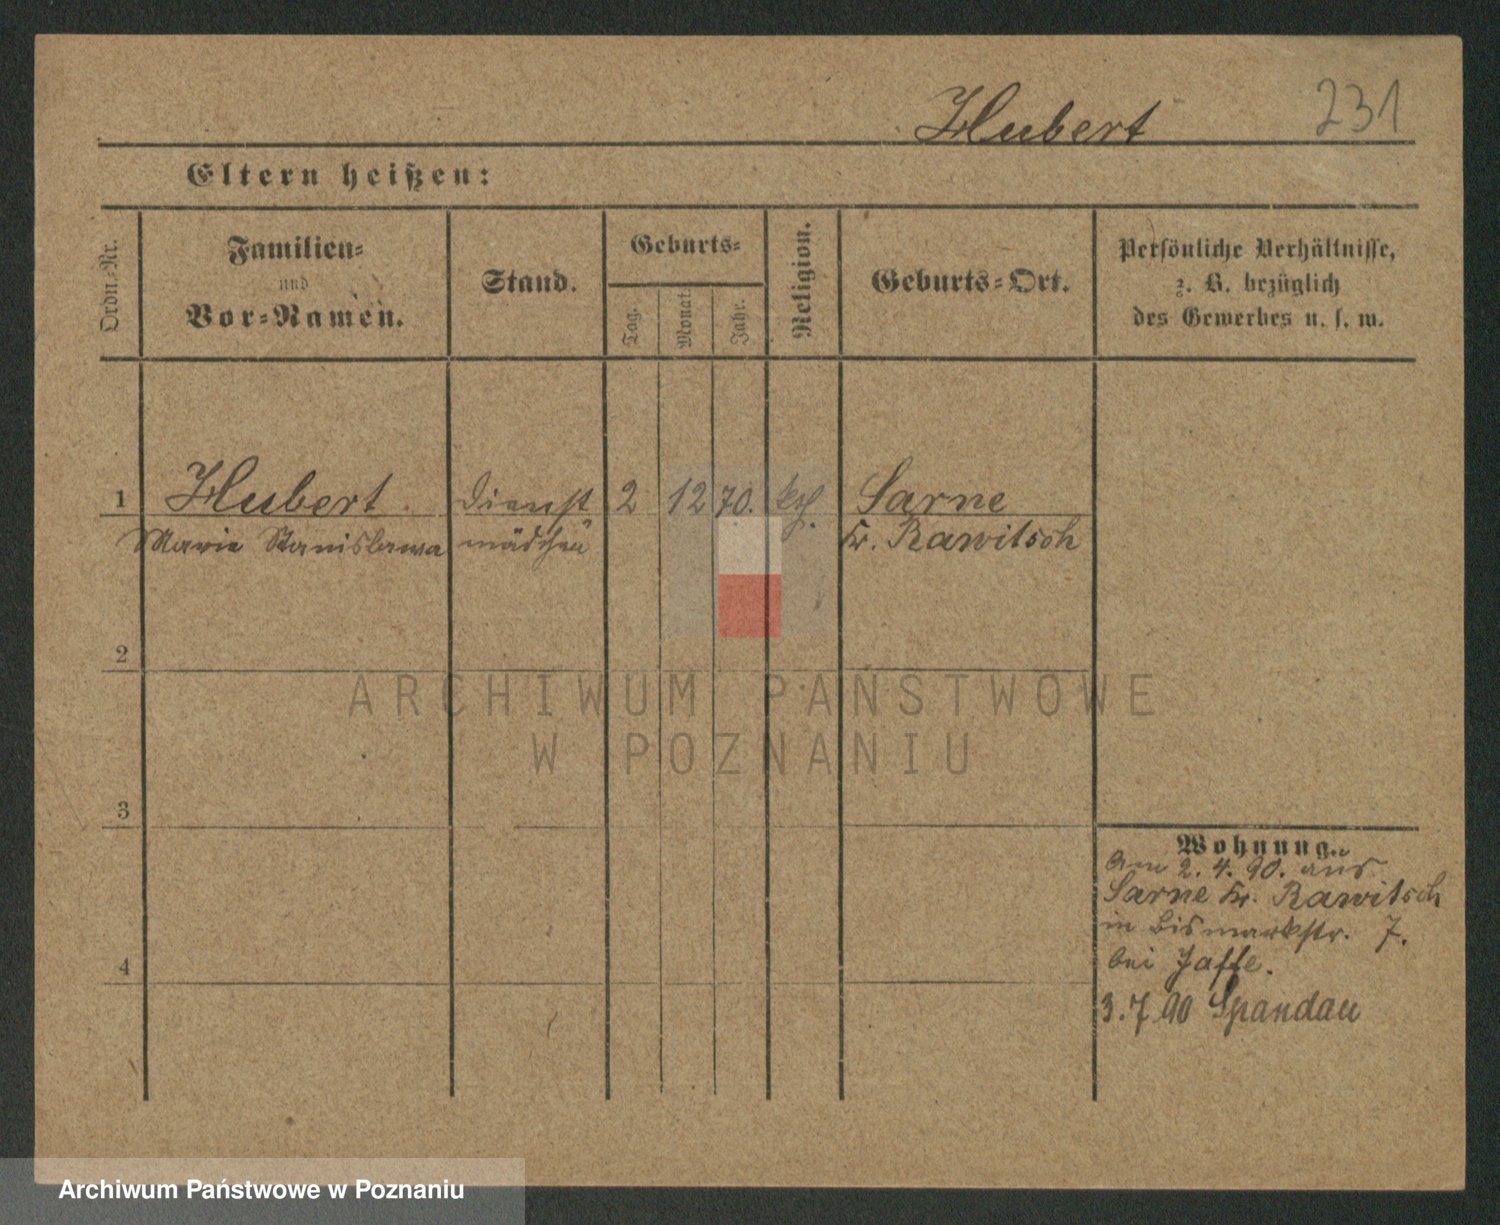 Hubert 231
Eltern heißen:
Ordn.-Nr.
Familien-
und
Vor-Namen.
Stand.
Geburts-
Tag.
Monat.
Jahr.
Religion.
Geburts-Ort.
Persönliche Verhältnisse,
z. B. bezüglich
des Gewerbes u. s. w.
1 Hubert. Dienst 2 12 70. kth. Sarne
Marie Stanislawa mädchen Kr. Rawitsch
2
ARCHIWUM PAŃSTWOWE
W POZNANIU
3
Wohnung.
Am 2. 4. 90. aus
Sarne Kr. Rawitsch
in Bismarkstr. 7.
bei Jaffe.
4
3. 7. 90 Spandau
Archiwum Państwowe w Poznaniu